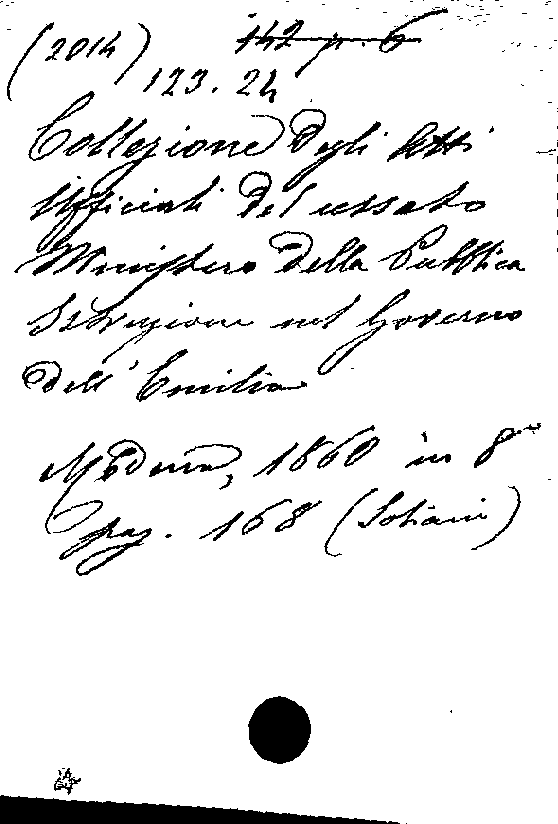 (2014) 142 p. 6
123. 24
Collezione degli Atti
Ufficiali del cessato
Ministero della Pubblica
Istruzione nel Governo
dell' Emilia
Modena, 1860 in 8º
pag. 168 (Soliani)